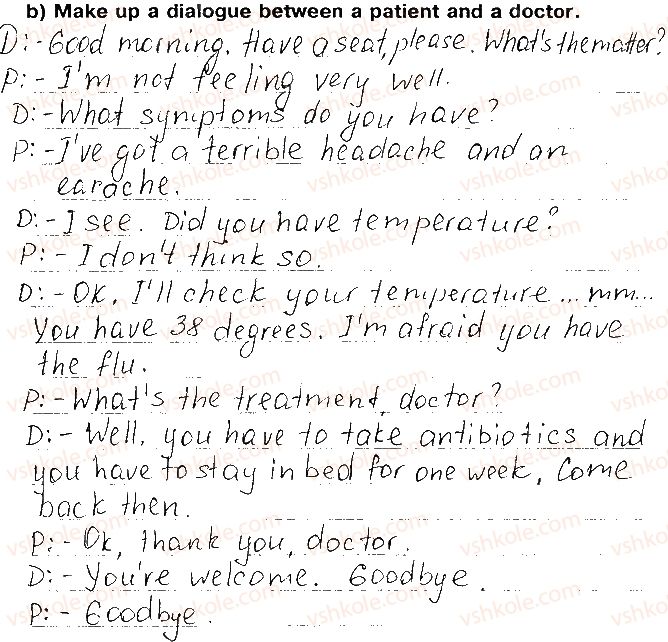 b) Make up a dialogue between a patient and a doctor.
D: - Good morning. Have a seat, please. What's the matter?
P: - I'm not feeling very well.
D: - What symptoms do you have?
P: - I've got a terrible headache and an
earache.
D: - I see. Did you have temperature?
P: - I don't think so.
D: - OK, I'll check your temperature ... mm...
You have 38 degrees. I'm afraid you have
the flu.
P: - What's the treatment, doctor?
D: - Well, you have to take antibiotics and
you have to stay in bed for one week, Come
back then.
P: - Ok, thank you, doctor.
D: - You're welcome. Goodbye.
P: - Goodbye.
vshkole.com